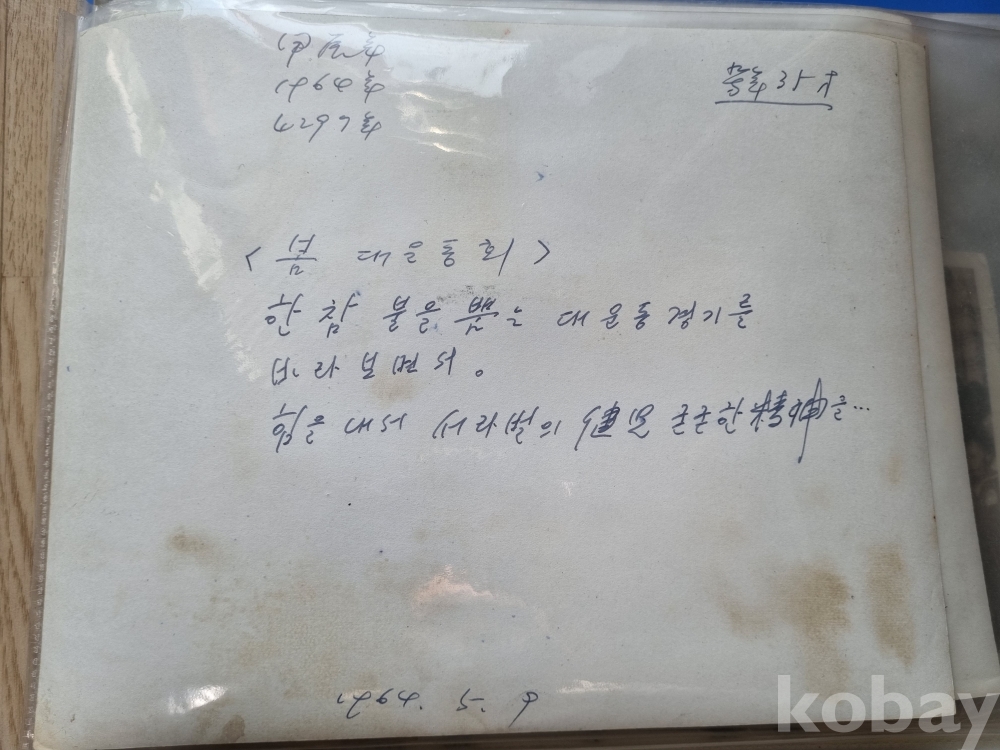 甲辰年
1964年
4297年
當年 35才
<봄 대운동회>
한참 불을 뿜는 대운동경기를
바라보면서。
힘을 내서 서라벌의 굳굳한 精神을…
1964. 5. 9
kobay